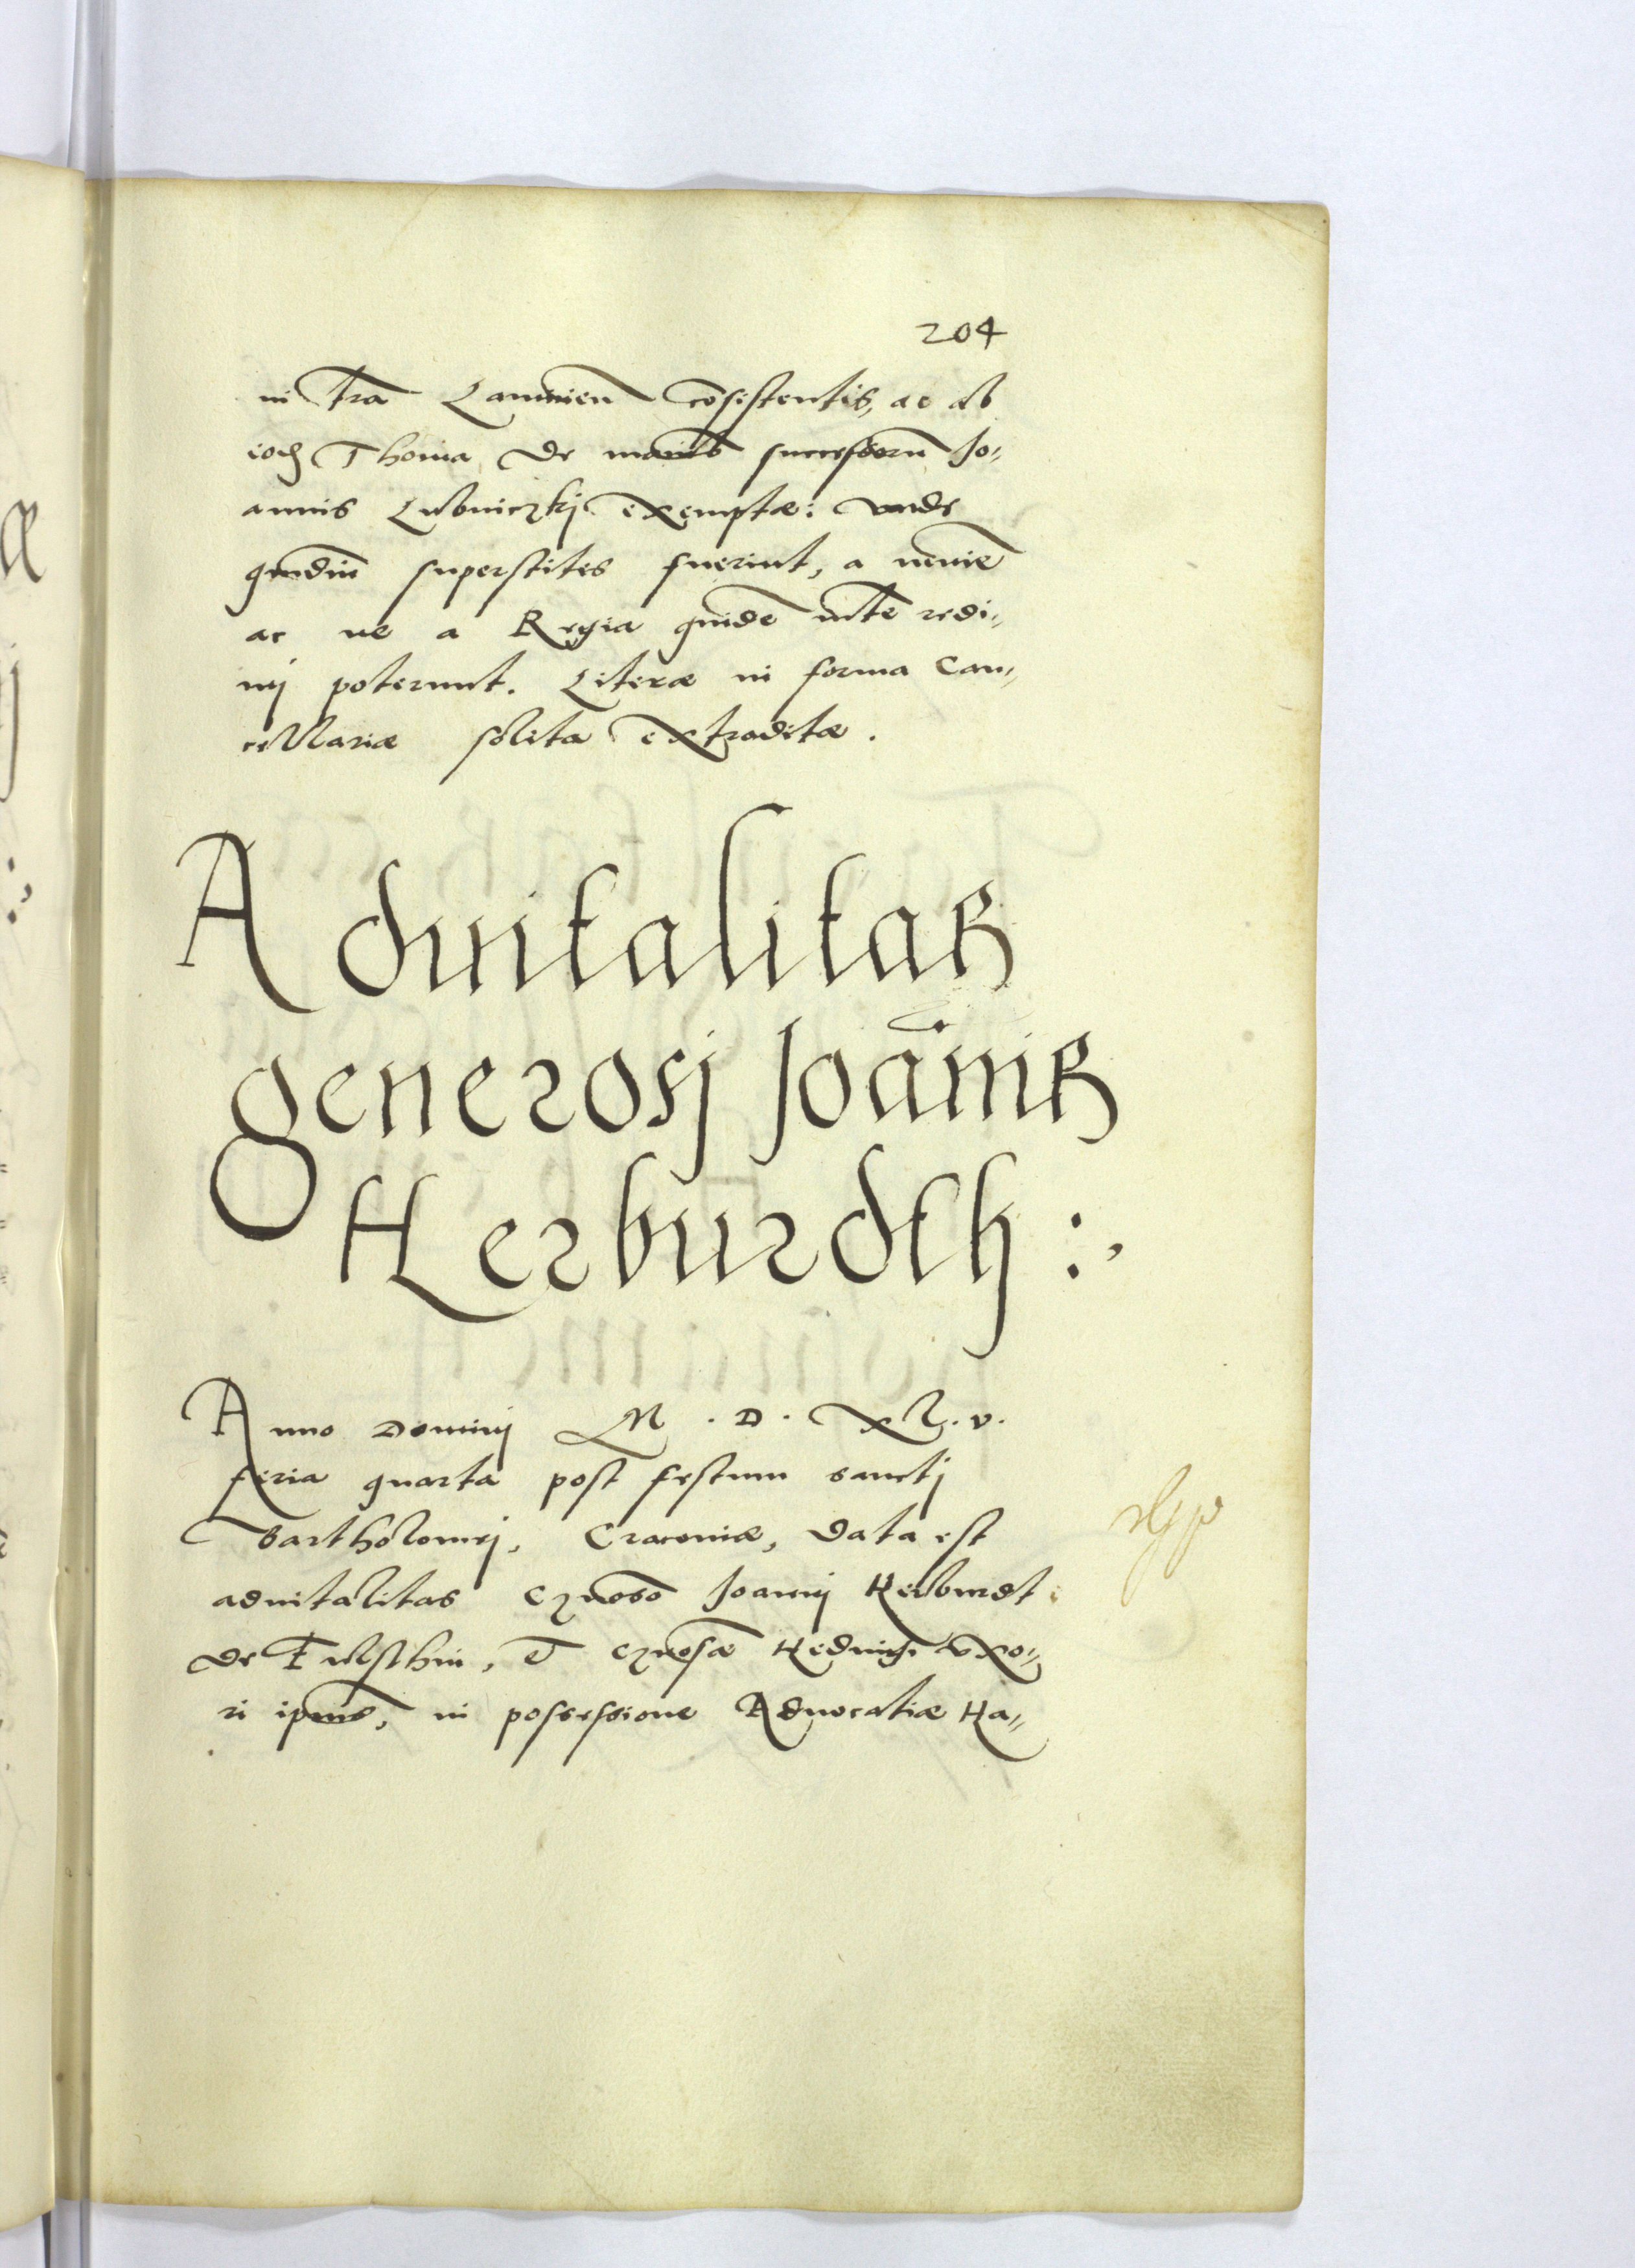 204
in tra Lanxicien cosistentis, ac ab
eod Thoma de manib successorum Jo,,
annis Lubniczkj exemptæ: unde
quodiu superstites fuerint, a nemie
ac ne a Regia quide mte redi,,
mj poterunt. Literæ in forma Can,,
cellariæ solita extraditæ.
Aduitalitas
generosj Joānis
Herburdth :,
Anno Dominj M.D.XL.v.
feria quarta post festum sanctj
Bartholomej, Cracoviæ, data est
aduitalitas Gnoso Joannj Herburdt
de Fulsthin, Et Gnosæ Hedvigi uxo,,
ri ipius, in possessione Aduocatiæ Ha,,